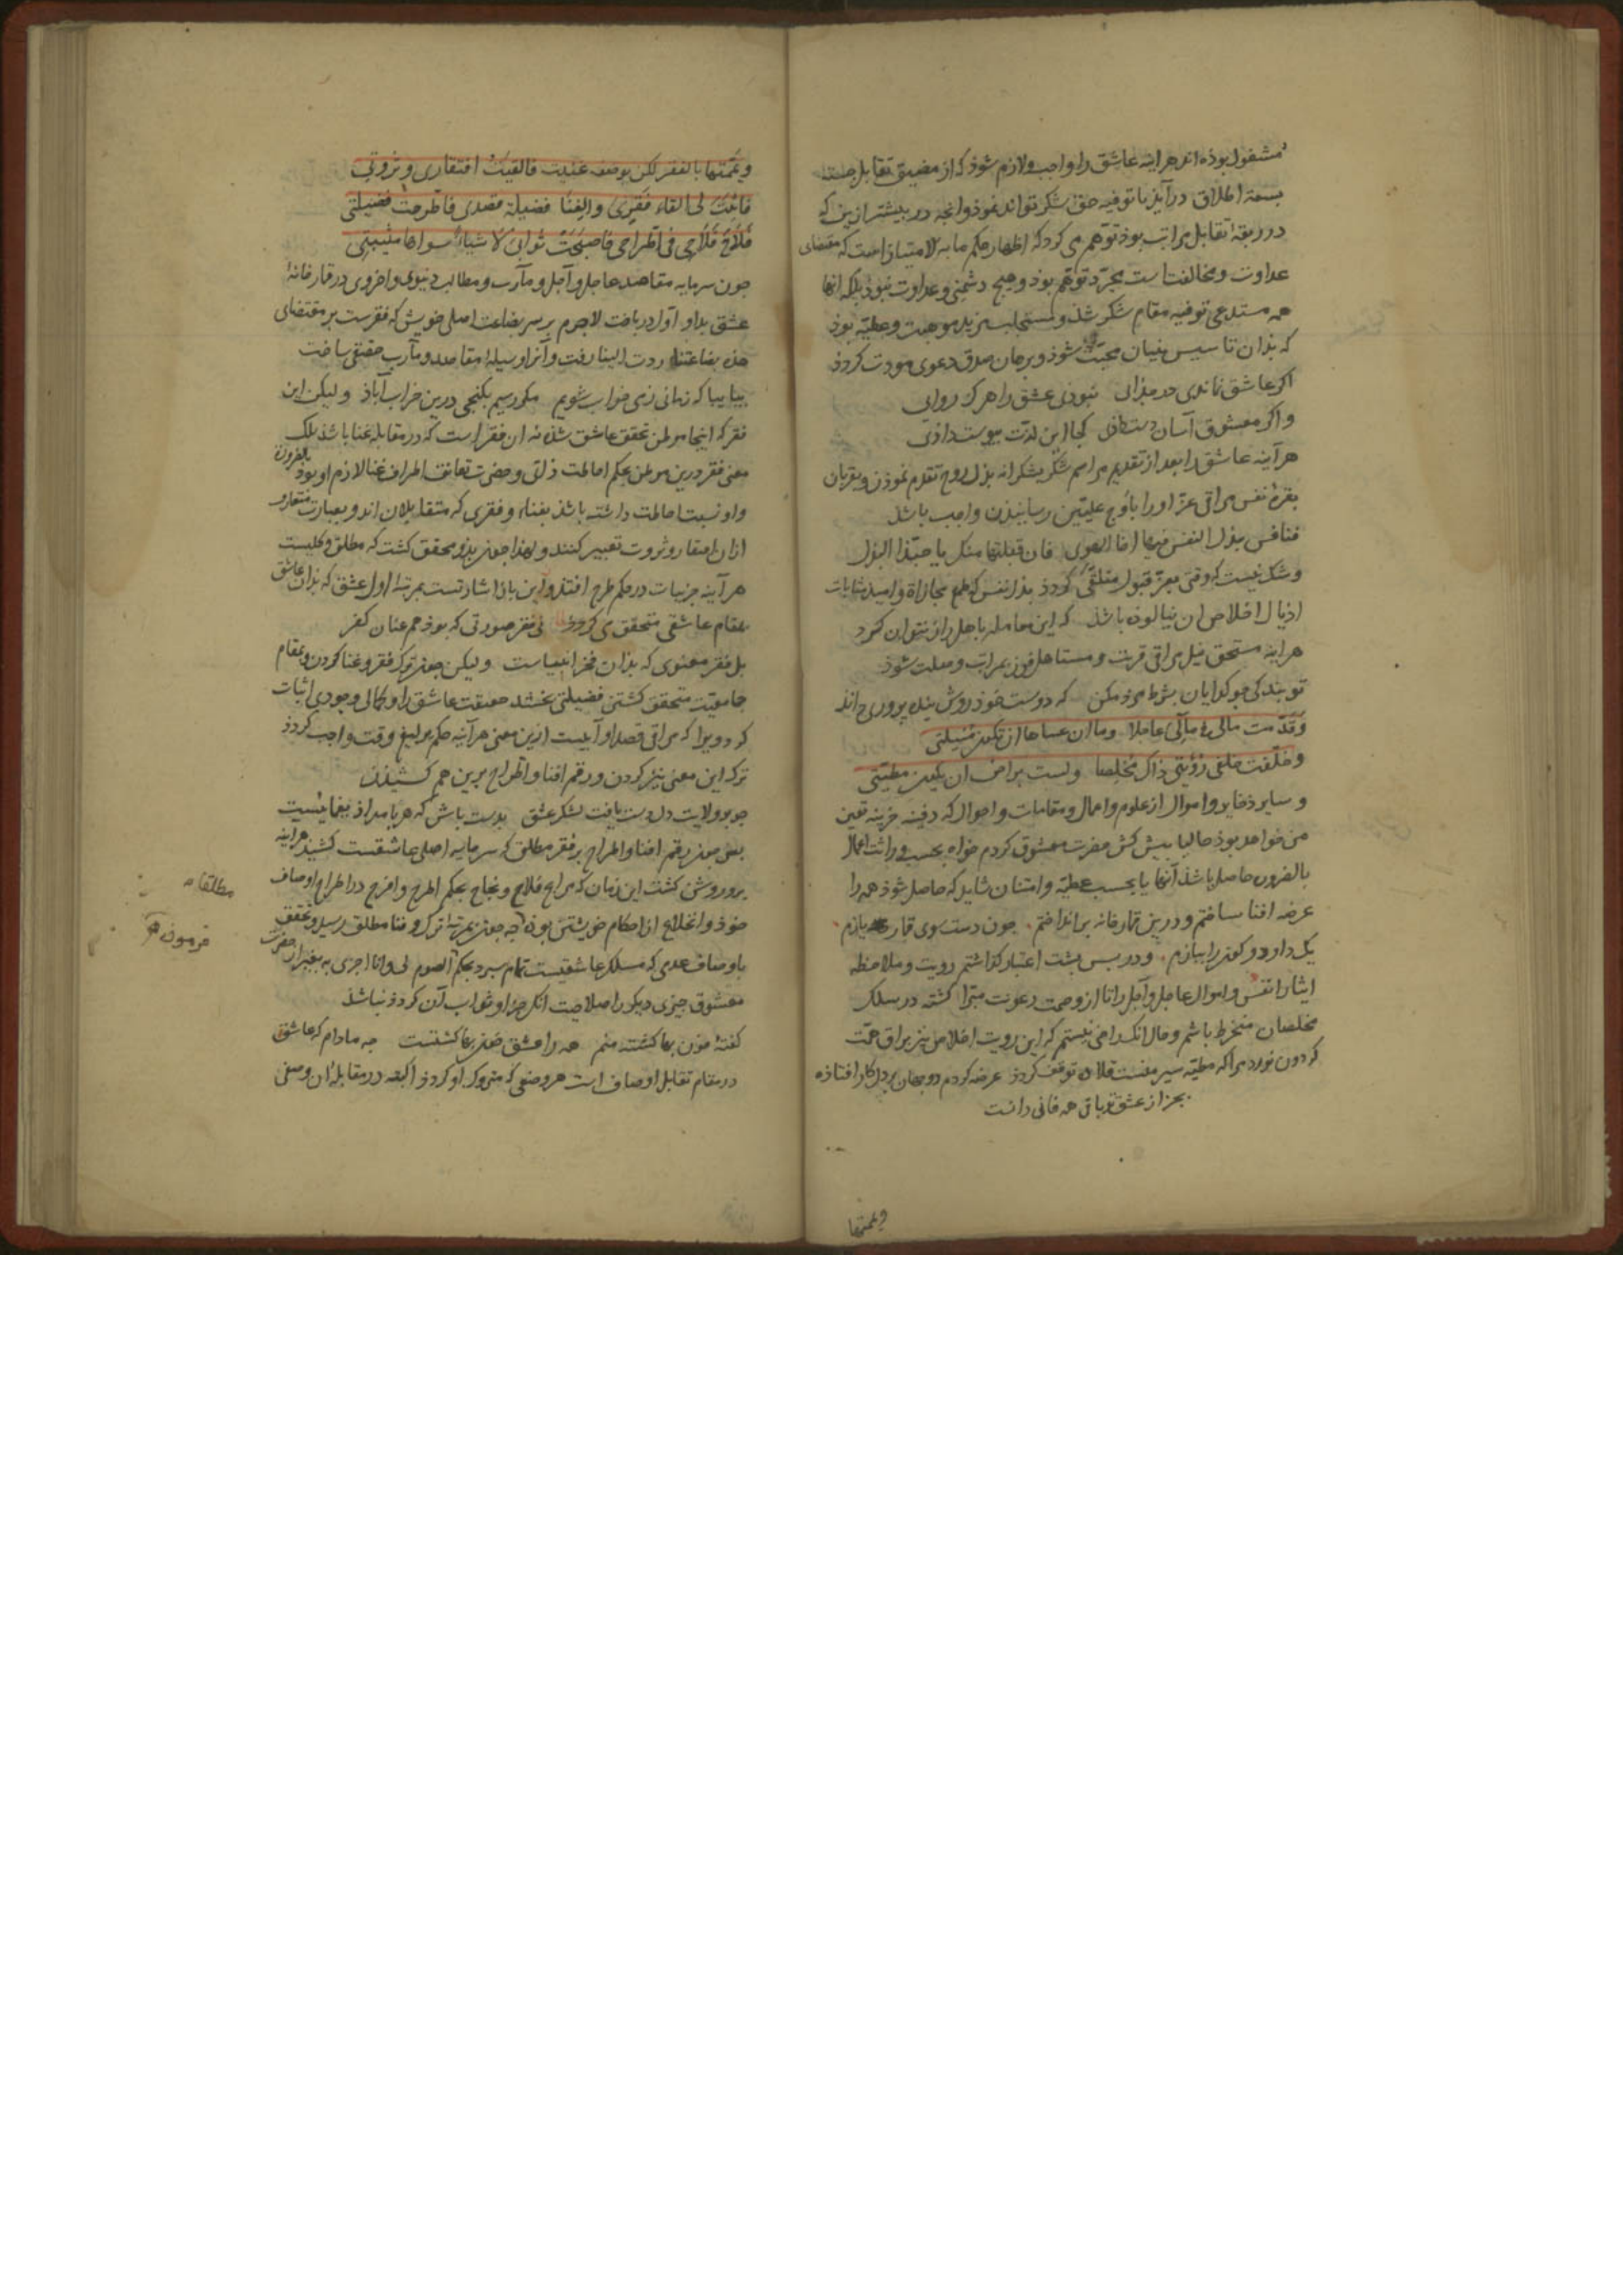 مشغول بوذه اند هر اینه عاشق را واجب ولازم شوذ که از مضیق تقابل جسته
بسعة اطلاق در آیذ با توفیه حق شکر تواند نموذ وانچه در بیشتر ازین که
در ربقهٔ تقابل مراتب بوذ توهم می کرد که اظهار حکم ما به الامتیاز است که مقتضای
عداوت ومخالفت است مجرّد توهم بوذ وهیچ دشمنی وعداوت نبوذ بلکه انها
همه مستدعی توفیه مقام شکر شذ ومستجلب مزید موهبت وعطیّه بوذ
که بذان تاسیس بنیان محبّت شوذ وبرهان صدق دعوی مودت کردذ
اکر عاشق نماندی در جذائی نبوذی عشق را هرکز روائی
واکر معشوق آسان دست داذی کجا این لذّت پیوست داذی
هر آینه عاشق را بعد از تقدیم مراسم شکر بشکرانه بذل روح تقدم نموذن وبقربان
بقرهٔ نفس مراقی عزّ او را باوج علیّین رسانیذن واجب باشذ
فنافس ببذل النفس فیها اخا الهوی فان قبلتها منک یا حبّذا البذل
وشک نیست که وقتی بعزّ قبول متلقّی کردذ بذل نفس که طمع مجازاة وامید مثابات
اذیال اخلاص ان نیالوذه باشذ که این معامله با اهل راز نتوان کرد
هر اینه مستحق نیل مراقی قربت ومستاهل فوز بمراتب وصلت شوذ
تو بندکی چو کدایان بشرط مزد مکن که دوست خوذ روش بنده پروری داند
وقدّمت مالی فی مآلی عاجلا وما ان عساها ان تکون منیلتی
وخلّفت خلفی رؤیتی ذاک مخلصا ولست براض ان یکون مطیّتی
وسایر ذخایر واموال از علوم واعمال ومقامات واحوال که دفینه خزینه تعین
من خواهد بوذ حالیا بیش کش حضرت معشوق کردم خواه بحسب وراثت اعمال
بالفرون حاصل باشذ آنها یا بحسب عطیّه وامتنان شاید که حاصل شوذ همه را
عرضه افنا ساختم ودرین قمارخانه بر انداختم جون دست سوی قمار یازم
یک داو دو کون را ببازم ودر بس بشت اعتبار کذاشتم رویت وملاحظه
ایثار انفس واموال عاجل وآجل را تا از وصمت رعونت مبرّا کشته در سلک
مخلصان منخرط باشم وحال انک راضی نیستم که این رویت اخلاص نیز براق همّت
کردون نورد مرا که مطیّه سیر منست قلاده توقف کردذ عرضه کردم دو جهان بر دل کار افتاذه
بجز از عشق تو باقی همه فانی دانست
ویممتها
ویممتها بالفقر لکن بوصفه غنیت فالقیت افتقاری وثروتی
فاثبت لی القاء فقری والغنا فضیلة قصدی فاطّرحت فضیلتی
فلاح فلاحی فی اطّراحی فاصبحت ثوابی لا شیاء سواها مثیبتی
جون سرمایه مقاصد عاجل وآجل ومآرب ومطالب دنیوی واخروی در قمارخانهٔ
عشق بداو اول درباخت لاجرم بر سر بضاعت اصلی خویش که فقرست بر مقتضای
هذه بضاعتنا ردت الینا رفت وآنرا وسیله مقاصد ومآرب حقیقی ساخت
بیا بیا که زمانی ز می خراب شویم مکر رسیم بکنجی درین خراب آباذ ولیکن این
فقر که اینجا موطن تحقق عاشق شذه نه ان فقر است که در مقابله غنا باشذ بلک
معنی فقر درین موطن بحکم احاطت ذاتی وحضرت تعانق اطراف غنا لازم او بوذ بالفرورة
واو نسبت احاطت داشته باشذ بغناء وفقری که متقابلان اند وبعبارت متعارف
ازان بافتقار وثروت تعبیر کنند ولهذا جون بذو محقق کشت که مطلق وکلیست
هر آینه جزئیات در حکم طرح افتذ واین باذ اشارتست بمرتبهٔ اول عشق که بذان عاشق
بمقام عاشقی متحقق می کردذ نی فقر صورتی که بوذ هم عنان کفر
بل فقر معنوی که بذان فخر انبیاست ولیکن جون ترک فقر وغنا کردن وبمقام
جامعیّت متحقق کشتن فضیلتی بخشد حقیقت عاشق را وکمالی وجودی اثبات
کردویرا که مراقی قصد او آبیست ازین معنی هر آینه حکم بر لیغ وقت واجب کردذ
ترک این معنی نیز کردن ورقم افنا واطّراح برین هم کشیذن
جو بر ولایت دل دست یافت لشکر عشق بدست باش که هر بامداذ یغمائیست
بس جون رقم افنا واطراح بر فقر مطلق که سرمایه اصلی عاشقست کشیذ هر اینه
برو روشن کشت این زمان که مراح فلاح ونجاح بحکم اطرح وافرح در اطراح اوصاف
خوذ وانخلاع از احکام خویشتن بوذه جه جون بمرتبهٔ ترک وفنا مطلق رسید وتحقق
باوصاف عدمی که مسلک عاشقیست تمام سبرد بحکم الصوم لی وانا اجزی به بغیر از حضرت
معشوق جیزی دیکر را صلاحیت انک جزا وثواب آن کردذ نباشذ
کفته خون بها کشته منم هر را عشق خون بها کشتست جه مادام که عاشق
در مقام تقابل اوصاف است هر وصفی که متروک او کردذ البته در مقابلهٔ ان وصفی
مطلقا